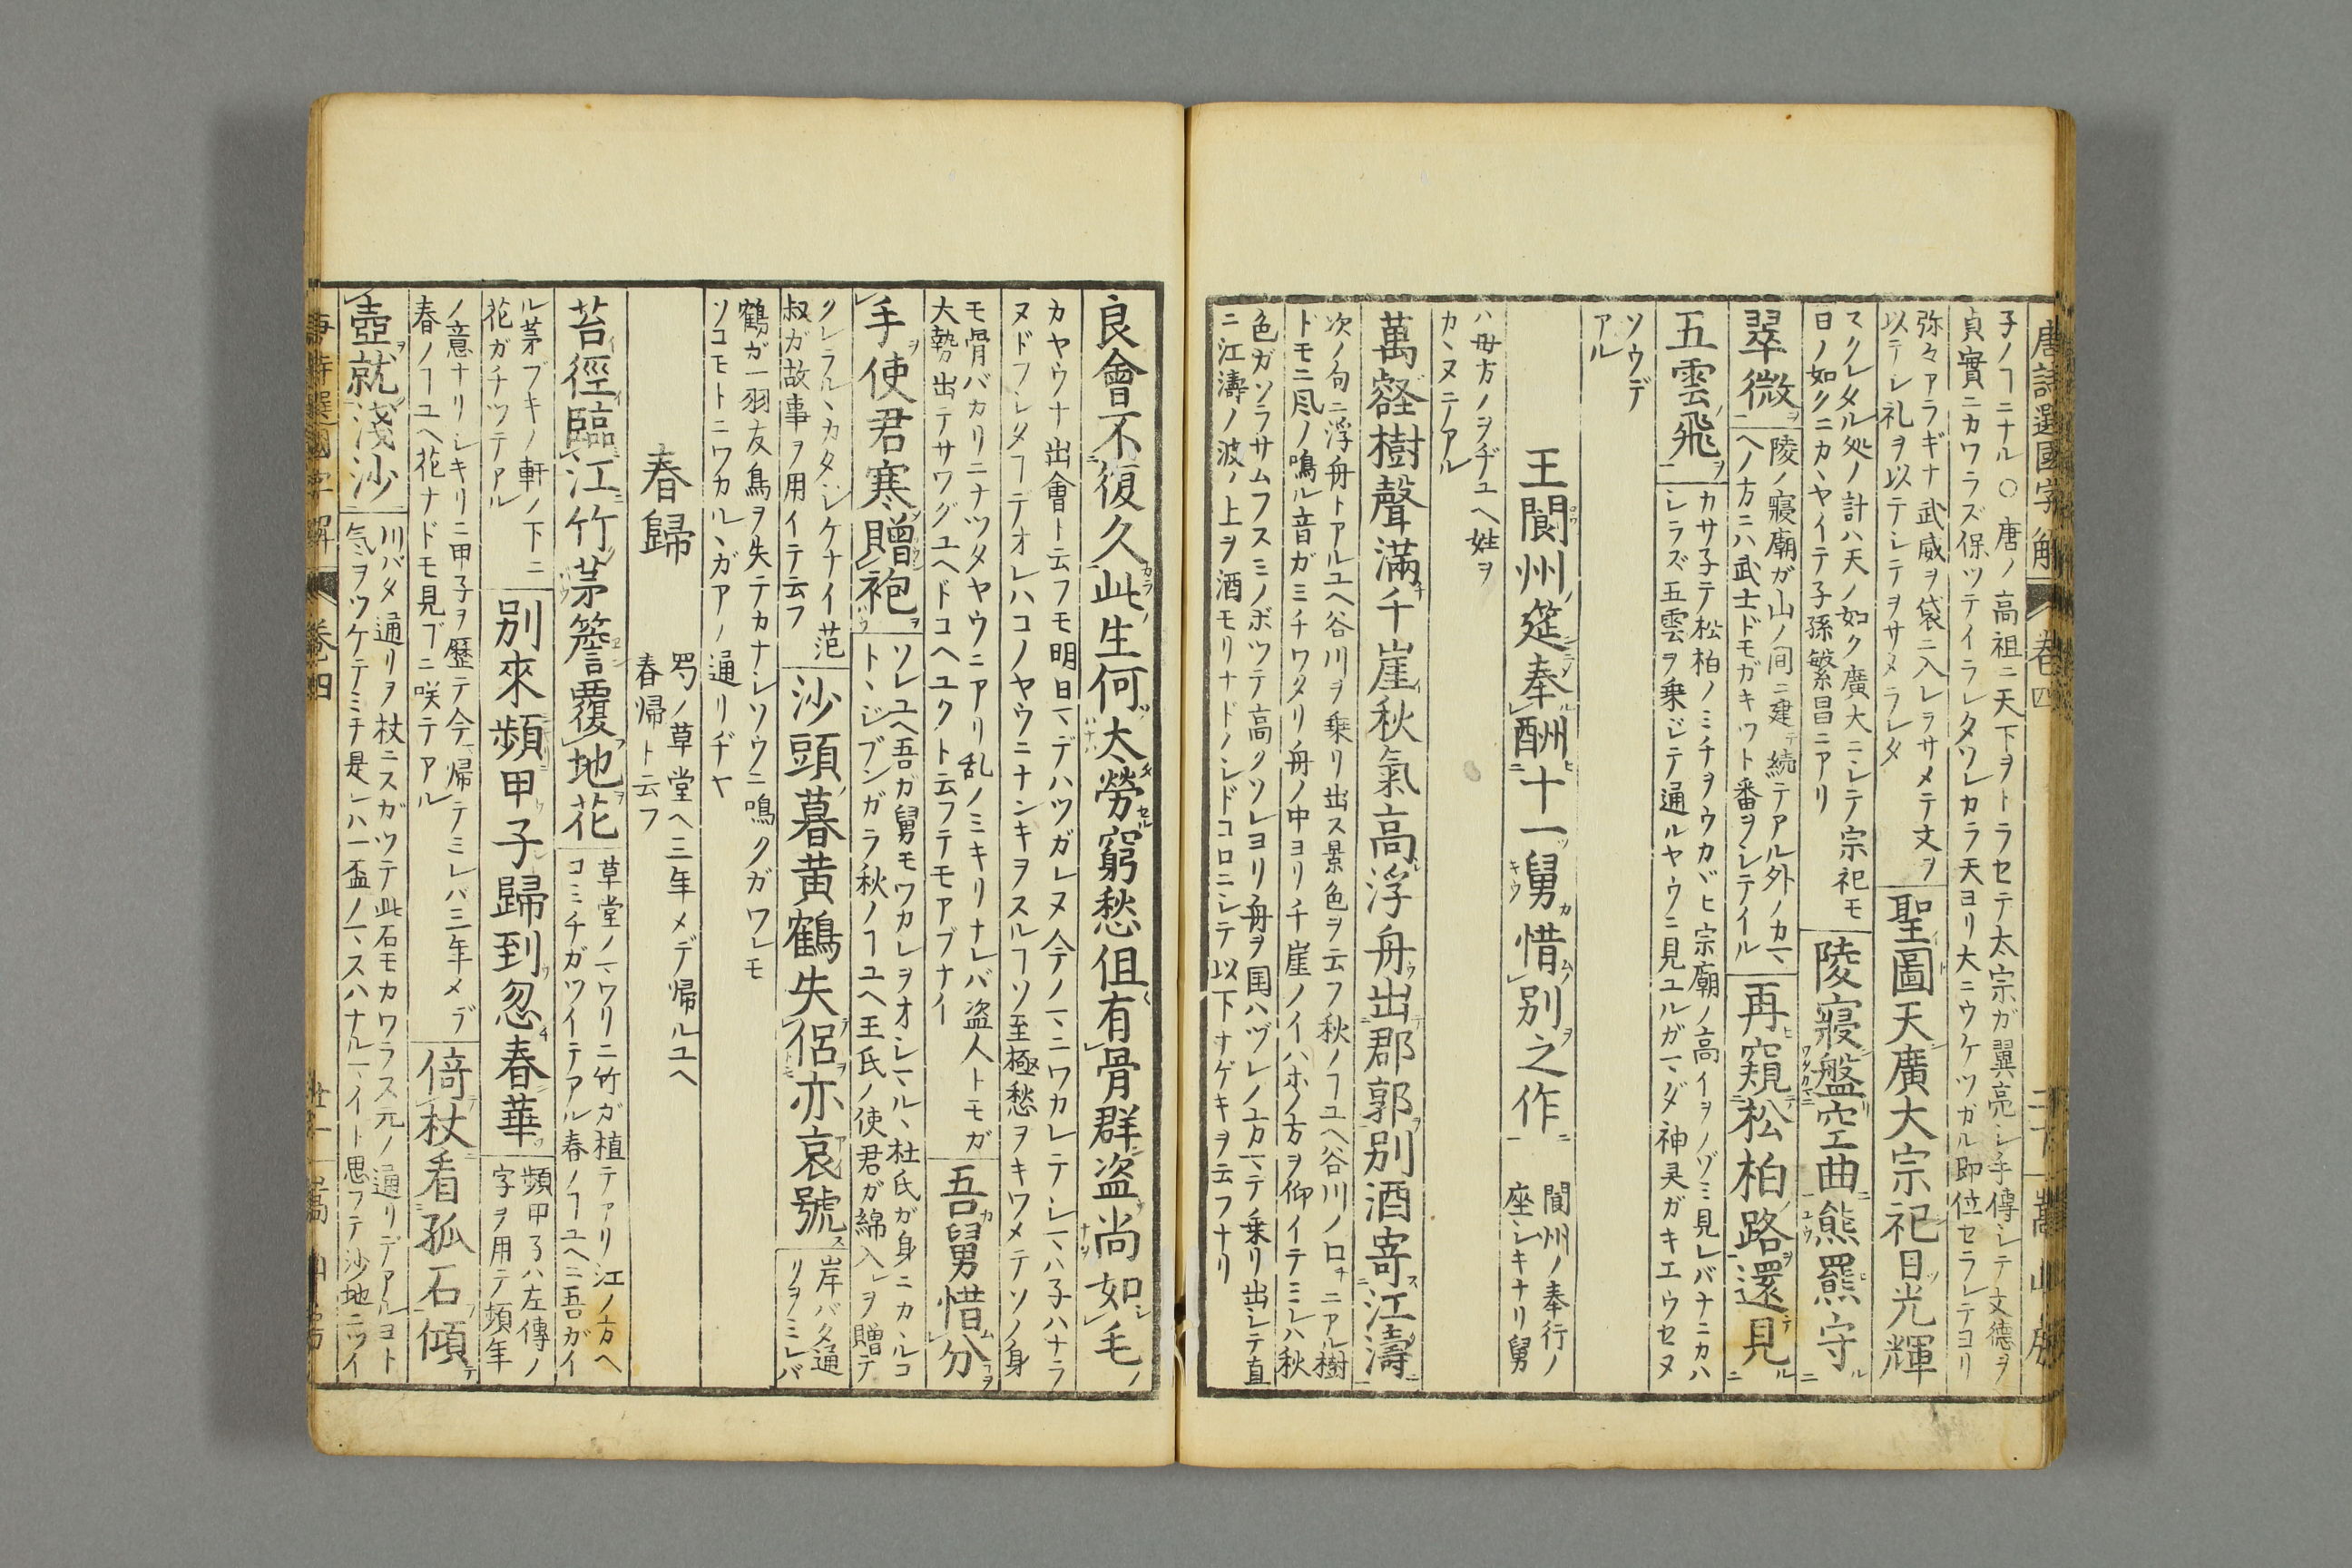 唐詩選國字解 卷四
子ノヿニナル○唐ノ高祖ニ天下ヲトラセテ太宗ガ翼亮シ手傳シテ文德ヲ
貞實ニカワラズ保ツテイラレタソレカラ天ヨリ大ニウケツガル即位セラレテヨリ
弥々アラギナ武威ヲ袋ニ入レラサメテ文ヲ
以テシ礼ヲ以テシテヲサメラレタ
聖圖天廣大宗祀日光輝
スクレタル処ノ計ハ天ノ如ク廣大ニシテ宗祀モ
日ノ如クニカヽヤイテ子孫繁昌ニアリ
陵寢盤空曲熊羆守
翠微
陵ノ寢廟ガ山ノ间ニ建テ続テアル外ノカマヽ
ヘノ方ニハ武士ドモガキツト番ヲシテイル
再窺松柏路還見
五雲飛
カサ子テ松柏ノミチヲウカヾヒ宗廟ノ高イヲノゾミ見レバナニカハ
シラズ五雲ヲ乗ジテ通ルヤウニ見ユルガマヽダ神灵ガキエウセヌ
ソウデ
アル
王閬州筵奉酬十一舅惜別之作
閬州ノ奉行ノ
座シキナリ舅
ハ母方ノヲヂユヘ姓ヲ
カヽヌニアル
萬壑樹聲滿千崖秋氣高浮舟出郡郭別酒寄江濤
次ノ句ニ浮舟トアルユヘ谷川ヲ乗リ出ス景色ヲ云フ秋ノヿユヘ谷川ノ口チニアル樹
ドモニ風ノ鳴ル音ガミチワタリ舟ノ中ヨリ千崖ノイハホノ方ヲ仰イテミレハ秋
色ガソラサムフスミノボツテ高クソレヨリ舟ヲ国ハヅレノ方マヽテ乗リ出シテ直
ニ江濤ノ波ノ上ヲ酒モリナドノシドコロニシテ以下ナゲキヲ云フナリ
良會不復久此生何太勞窮愁但有骨群盗尚如毛
カヤウナ出會ト云フモ明日マヽデハツガレヌ今ノマヽニワカレテシマヽハ子ハナラ
ヌドフシタヿテオレハコノヤウニナンキヲスルヿソ至極愁ヲキワメテソノ身
モ骨バカリニナツタヤウニアリ乱ノミキリナレバ盗人トモガ
大勢出テサワグユヘドコヘユクト云フテモアブナイ
吾舅惜分
手使君寒贈袍
ソレユヘ吾ガ舅モワカレヲオシマヽル杜氏ガ身ニカヽルコ
トヽジブンガラ秋ノヿユヘ王氏ノ使君ガ綿入レヲ贈テ
クレラルヽカタシケナイ范
叔ガ故事ヲ用イテ云フ
沙頭暮黄鶴失侶亦哀號
岸バタ通
リヲミレバ
鶴ガ一羽友鳥ヲ失テカナシソウニ鳴クガワレモ
ソコモトニワカルヽガアノ通リヂヤ
春歸
蜀ノ草堂ヘ三年メデ帰ルユヘ
春帰ト云フ
苔徑臨江竹茅簷覆地花
草堂ノマヽワリニ竹ガ植テアリ江ノ方ヘ
コミチガツイテアル春ノヿユヘニ吾ガイ
ル茅ブキノ軒ノ下ニ
花ガチツテアル
別來頻甲子歸到忽春華
頻甲子ハ左傳ノ
字ヲ用テ頻年
ノ意ナリシキリニ甲子ヲ歴テ今マ帰テミレバ三年メデ
春ノヿユヘ花ナドモ見ブニ咲テアル
倚杖看孤石傾
壺就淺沙
川バタ通リヲ杖ニスガツテ此石モカワラス元ノ通リデアルヨト
気ヲツケテミテ是レハ一盃ノマヽスハナルマヽイト思フテ沙地ニツイ
唐詩選國字解 卷四